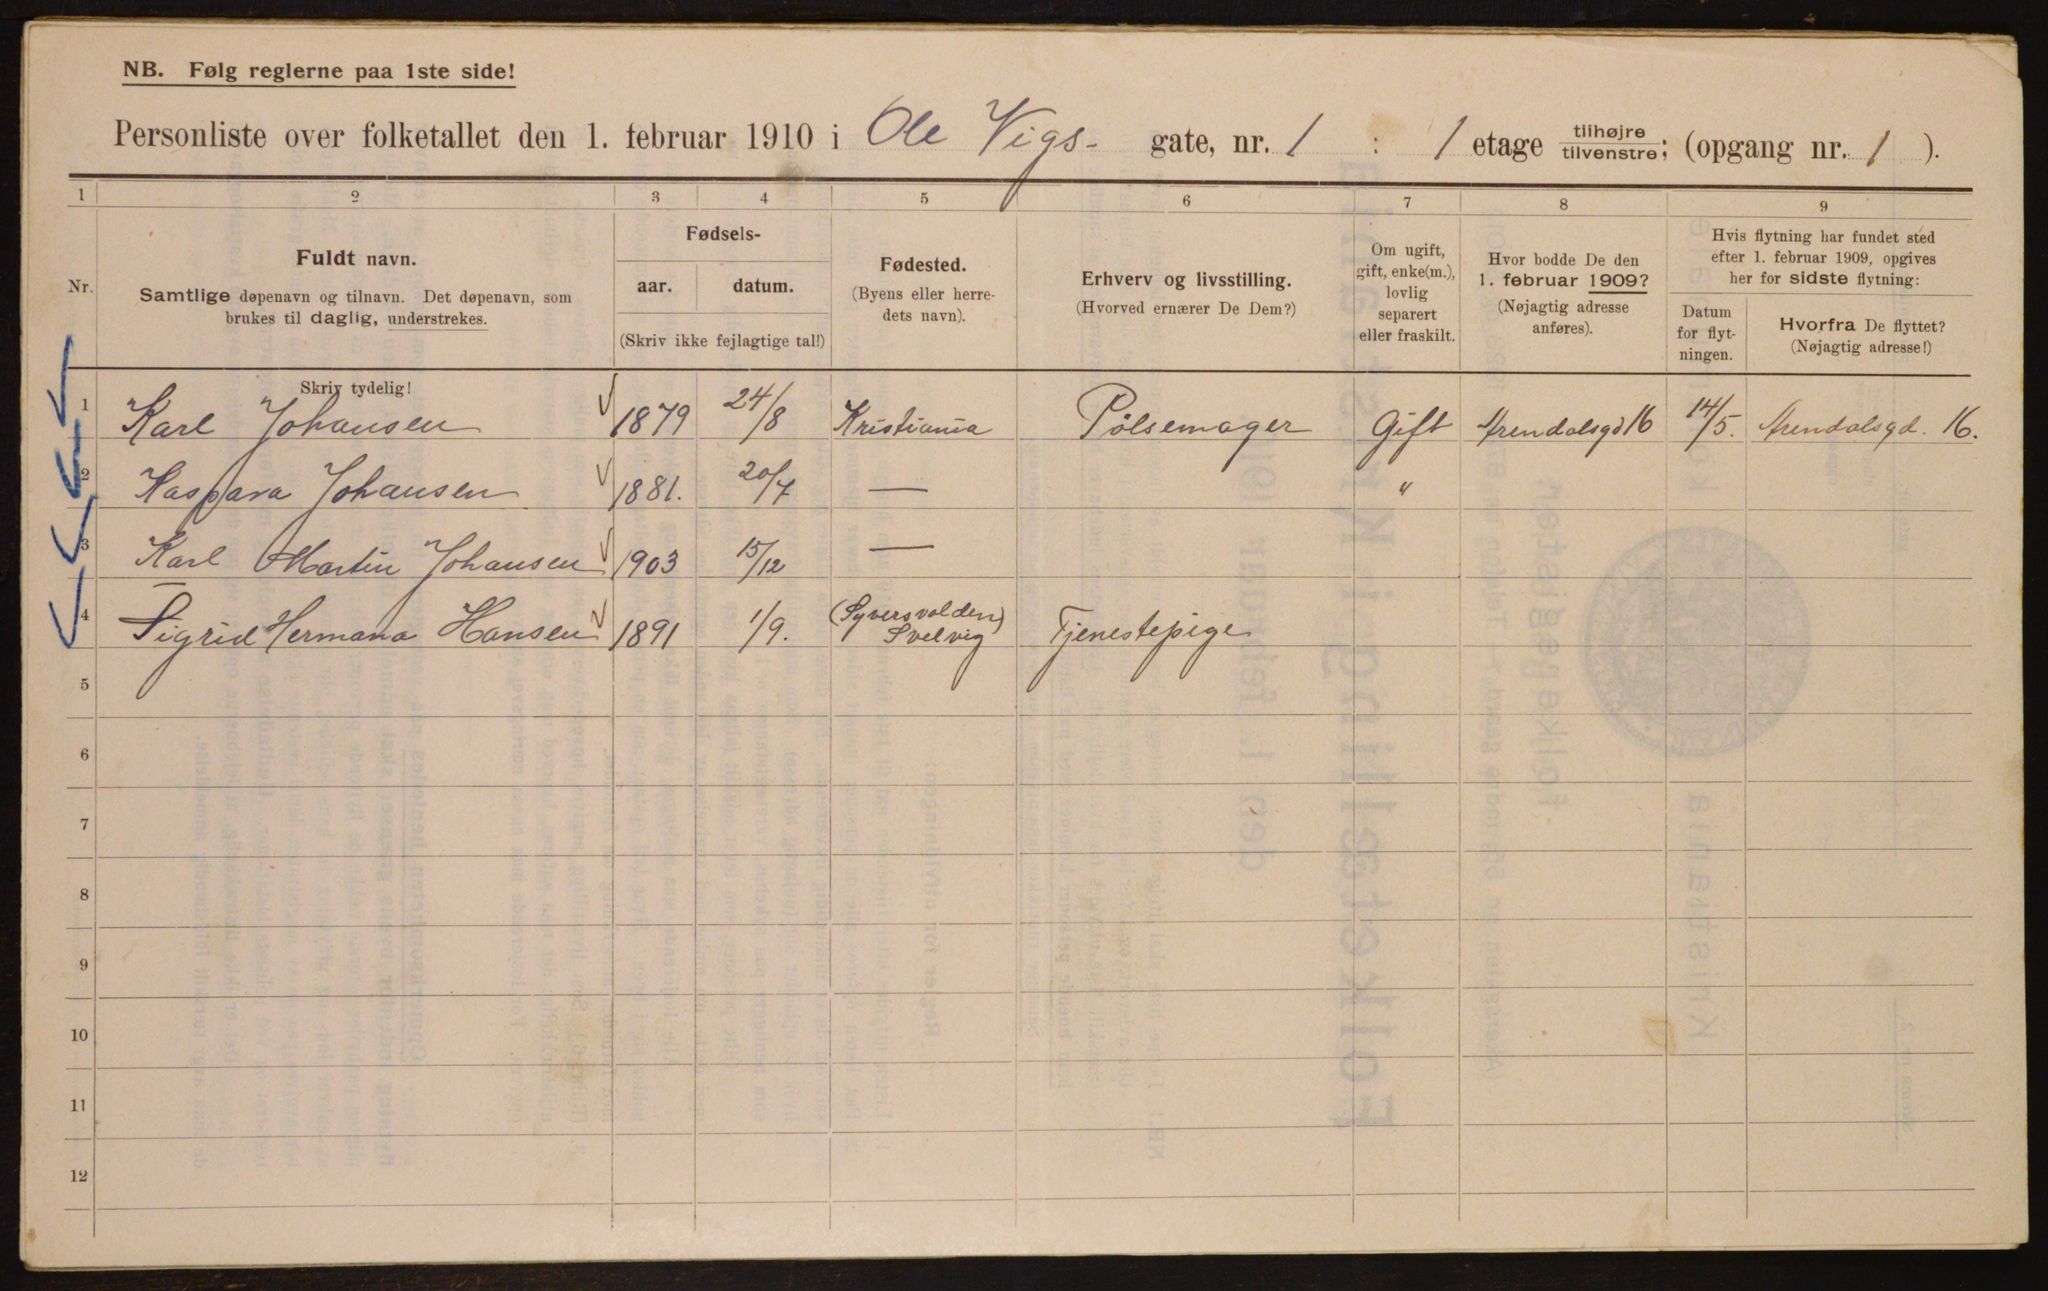 NB. Følg reglerne paa 1ste side!
Personliste over folketallet den 1. februar 1910 i Ole Vigs- gate, nr. 1 : 1 etage tilhøjre/tilvenstre; (opgang nr. 1 ).
1 2 3 4 5 6 7 8 9
Nr.
Fuldt navn.
Samtlige døpenavn og tilnavn. Det døpenavn, som
brukes til daglig, understrekes.
Fødsels-
aar. datum.
(Skriv ikke fejlagtige tal!)
Fødested.
(Byens eller herre-
dets navn).
Erhverv og livsstilling.
(Hvorved ernærer De Dem?)
Om ugift,
gift, enke(m.),
lovlig
separert
eller fraskilt.
Hvor bodde De den
1. februar 1909?
(Nøjagtig adresse
anføres).
Hvis flytning har fundet sted
efter 1. februar 1909, opgives
her for sidste flytning:
Datum
for flyt-
ningen.
Hvorfra De flyttet?
(Nøjagtig adresse!)
Skriv tydelig!
1 Karl Johansen 1879 24/8 Kristiania Pølsemager Gift Arendalsgd 16 14/5. Arendalsgd. 16.
2 Kaspara Johansen 1881. 20/7 — "
3 Karl Martin Johansen 1903 15/12 —
4 Sigrid Hermana Hansen 1891 1/9. (Syversvolden) Svelvig Tjenestepige
5
6
7
8
9
10
11
12